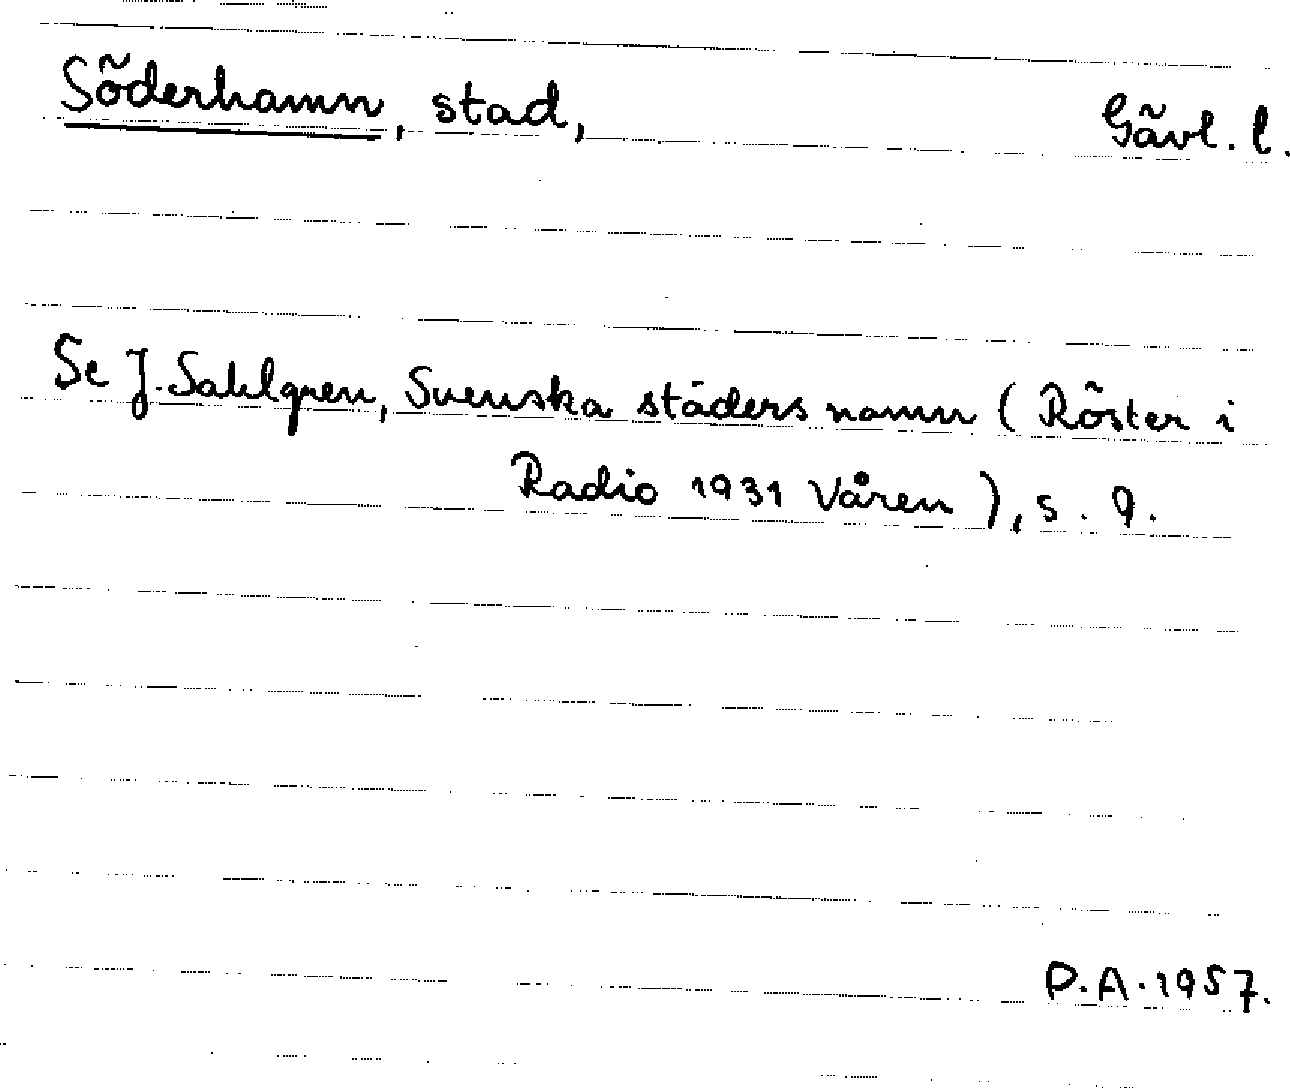 Söderhamn, stad, Gävl. l.
Se J. Sahlgren, Svenska städers namn (Röster i
Radio 1931 Våren), s. 9.
D.A. 1957.